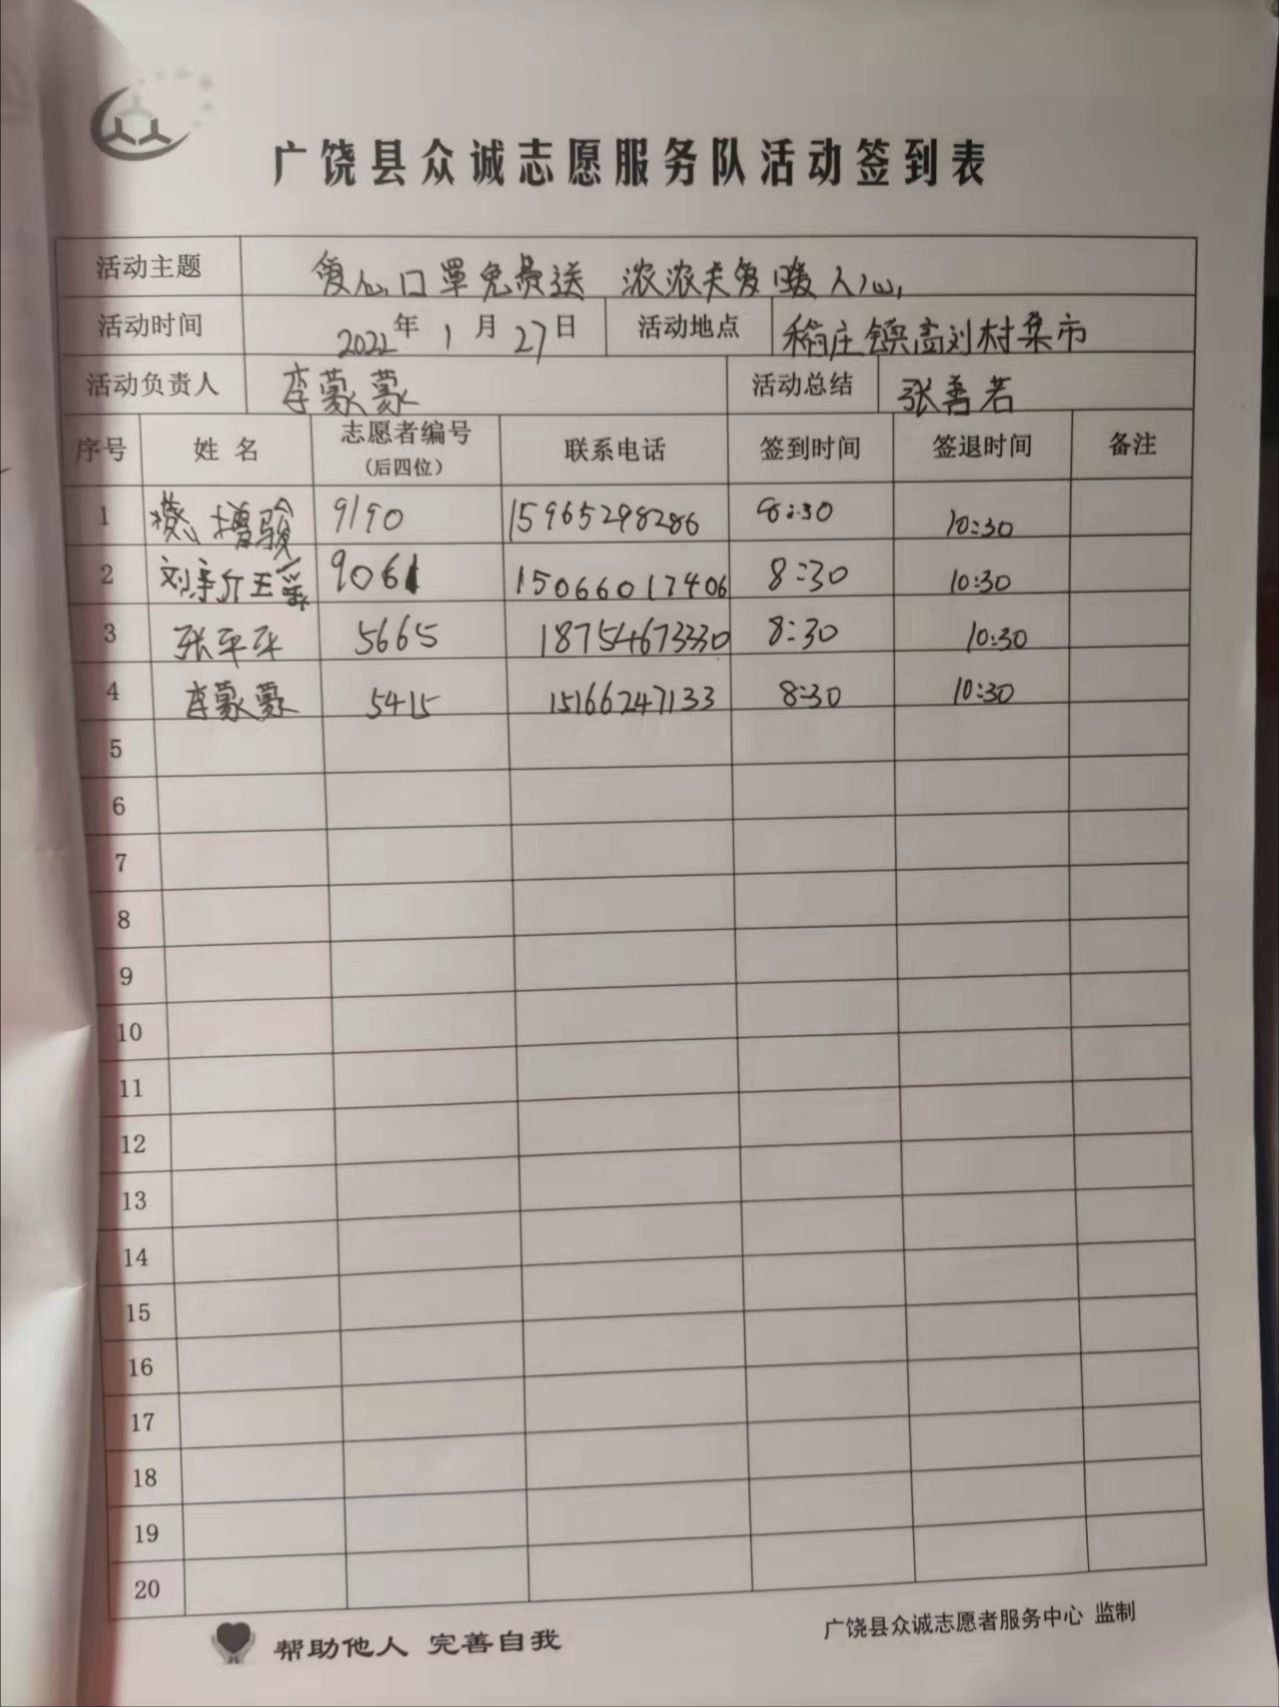 广饶县众诚志愿服务队活动签到表
活动主题 爱心口罩免费送 浓浓关爱暖人心
活动时间 2022年1月27日 活动地点 稻庄镇高刘村集市
活动负责人 李蒙蒙 活动总结 张善若
序号 姓名 志愿者编号 联系电话 签到时间 签退时间 备注
(后四位)
1 增骏 9190 15965298286 8:30 10:30
2 刘 9061 15066017406 8:30 10:30
3 张平平 5665 18754673330 8:30 10:30
4 李蒙蒙 5415 15166247133 8:30 10:30
5
6
7
8
9
10
11
12
13
14
15
16
17
18
19
20
帮助他人 完善自我
广饶县众诚志愿者服务中心 监制